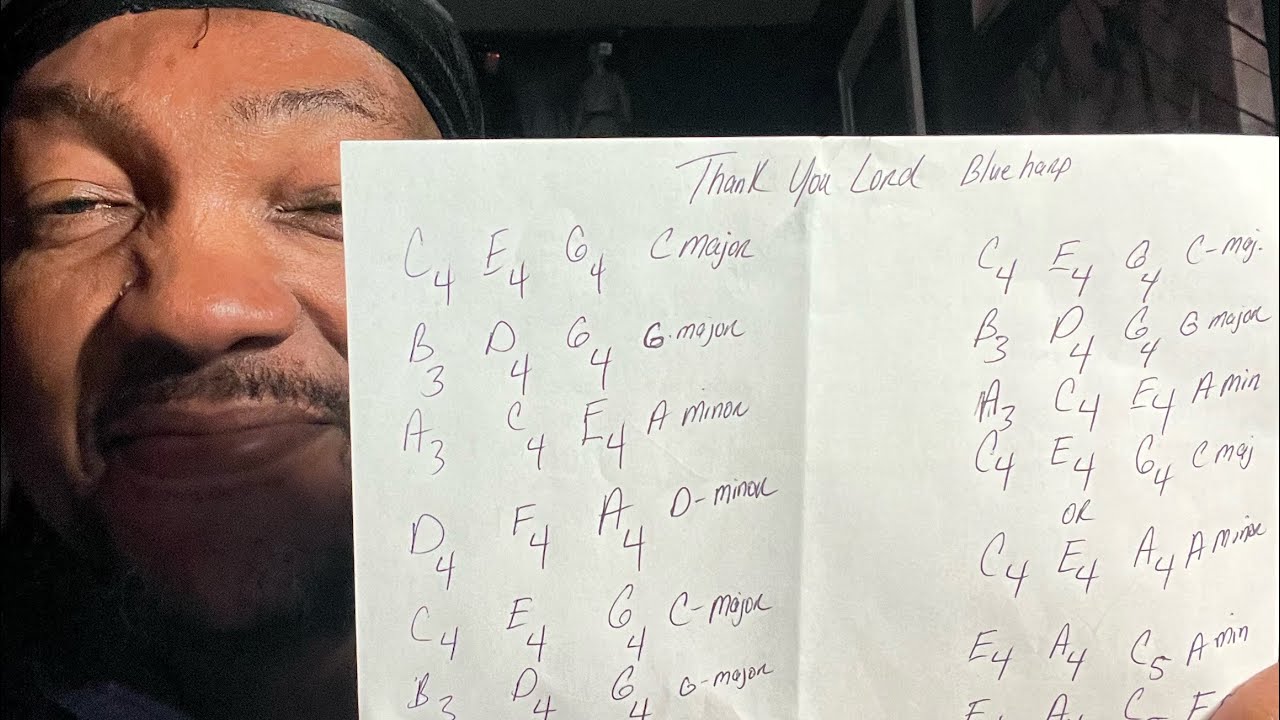 Thank You Lord Blueharp
C4 E4 G4 C major
B3 D4 G4 G-major
A3 C4 E4 A minor
D4 F4 A4 D-minor
C4 E4 G4 C-major
B3 D4 G4 G-major
C4 E4 G4 C-maj.
B3 D4 G4 G major
A3 C4 E4 A min
C4 E4 G4 C maj
OR
C4 E4 A4 A minor
E4 A4 C5 A min